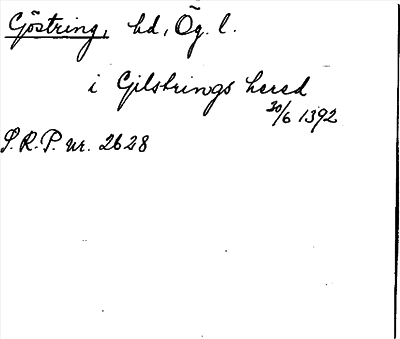 Göstring, hd, Ög. l.
i Gilstrings hered
30/6 1392
S.R.P. nr. 2628